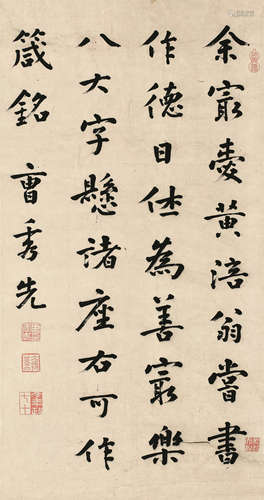 余最愛黃涪翁嘗書
作德日休為善最樂
八大字懸諸座右可作
箴銘 曹秀先